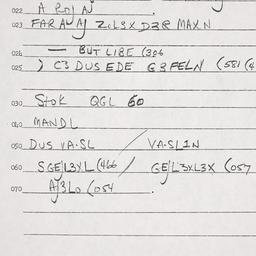 022 A
023 FARAUAJ ZILSX D3R MAXN
024 — BUT LIBE (306
025 ) C3 DUS EDE G3FELN (581 (4
030 Stok QGL 60
040 MANDL
050 DUS VA·SL / VA·SLIN
060 SGEJL3XL (466 / GEJL3XL3X (057
070 AJ3LO (054 .